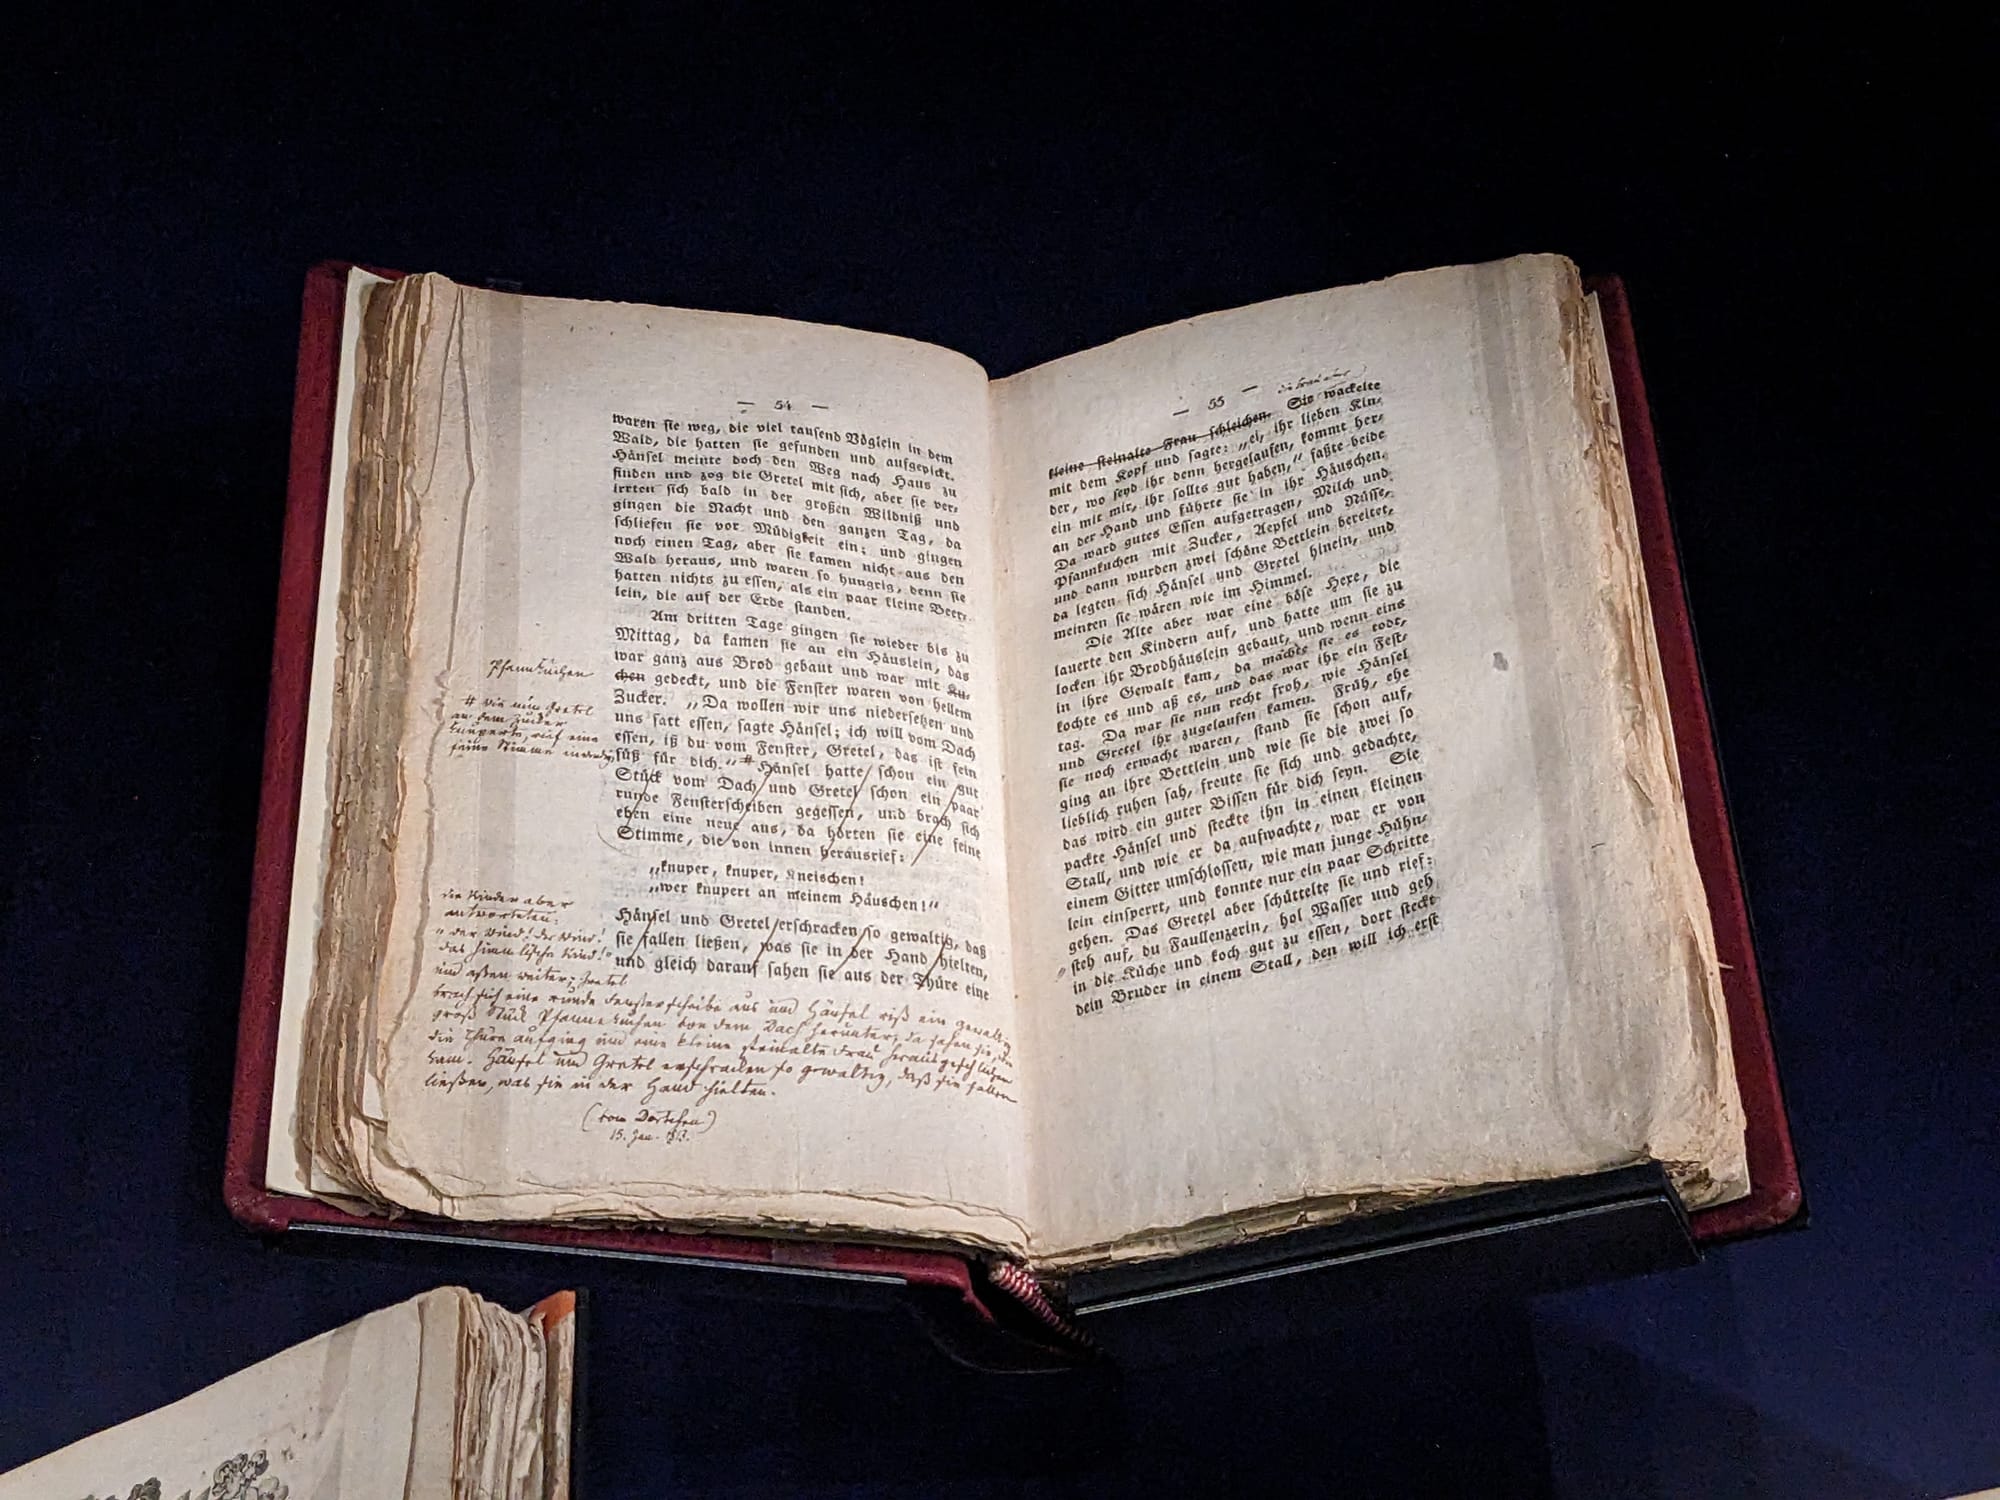 — 54 —
waren sie weg, die viel tausend Vöglein in dem
Wald, die hatten sie gefunden und aufgepickt.
Hänsel meinte doch den Weg nach Haus zu
finden und zog die Gretel mit sich, aber sie ver-
irrten sich bald in der großen Wildniß und
gingen die Nacht und den ganzen Tag, da
schliefen sie vor Müdigkeit ein; und gingen
noch einen Tag, aber sie kamen nicht aus dem
Wald heraus, und waren so hungrig, denn sie
hatten nichts zu essen, als ein paar kleine Beer-
lein, die auf der Erde standen.
Am dritten Tage gingen sie wieder bis zu
Mittag, da kamen sie an ein Häuslein, das
war ganz aus Brod gebaut und war mit Ku-
chen gedeckt, und die Fenster waren von hellem
Zucker. „Da wollen wir uns niedersetzen und
uns satt essen, sagte Hänsel; ich will vom Dach
essen, iß du vom Fenster, Gretel, das ist fein
süß für dich.“ # Hänsel hatte schon ein gut
Stück vom Dach und Gretel schon ein paar
runde Fensterscheiben gegessen, und brach sich
eben eine neue aus, da hörten sie eine feine
Stimme, die von innen herausrief:
„knuper, knuper, kneischen!
„wer knupert an meinem Häuschen!“
Hänsel und Gretel erschracken so gewaltig, daß
sie fallen ließen, was sie in der Hand hielten,
und gleich darauf sahen sie aus der Thüre eine
Pfannkuchen
# Wie nun Gretel
an dem Zucker
knuperte, rief eine
feine Stimme inwendig
die Kinder aber
antworteten:
„der Wind! der Wind!
das himmlische Kind!“
und aßen weiter; Gretel
brach sich eine runde Fensterscheibe aus und Hänsel riß ein gewaltig
groß Stück Pfannekuchen von dem Dach herunter; da sahen sie, wie
die Thüre aufging und eine kleine steinalte Frau herausgeschlichen
kam. Hänsel und Gretel erschracken so gewaltig, daß sie fallen
ließen, was sie in der Hand hielten.
(von Dortchen)
15. Jan. 1813.
— 55 —
die Frau aber
kleine steinalte Frau schleichen. Sie wackelte
mit dem Kopf und sagte: „ei, ihr lieben Kin-
der, wo seyd ihr denn hergelaufen, kommt her-
ein mit mir, ihr sollts gut haben,“ faßte beide
an der Hand und führte sie in ihr Häuschen.
Da ward gutes Essen aufgetragen, Milch und
Pfannkuchen mit Zucker, Aepfel und Nüsse,
und dann wurden zwei schöne Bettlein bereitet,
da legten sich Hänsel und Gretel hinein, und
meinten sie wären wie im Himmel.
Die Alte aber war eine böse Hexe, die
lauerte den Kindern auf, und hatte um sie zu
locken ihr Brodhäuslein gebaut, und wenn eins
in ihre Gewalt kam, da machte sie es todt,
kochte es und aß es, und das war ihr ein Fest-
tag. Da war sie nun recht froh, wie Hänsel
und Gretel ihr zugelaufen kamen. Früh, ehe
sie noch erwacht waren, stand sie schon auf,
ging an ihre Bettlein und wie sie die zwei so
lieblich ruhen sah, freute sie sich und gedachte,
das wird ein guter Bissen für dich seyn. Sie
packte Hänsel und steckte ihn in einen kleinen
Stall, und wie er da aufwachte, war er von
einem Gitter umschlossen, wie man junge Hühn-
lein einsperrt, und konnte nur ein paar Schritte
gehen. Das Gretel aber schüttelte sie und rief:
„steh auf, du Faullenzerin, hol Wasser und geh
in die Küche und koch gut zu essen, dort steckt
dein Bruder in einem Stall, den will ich erst